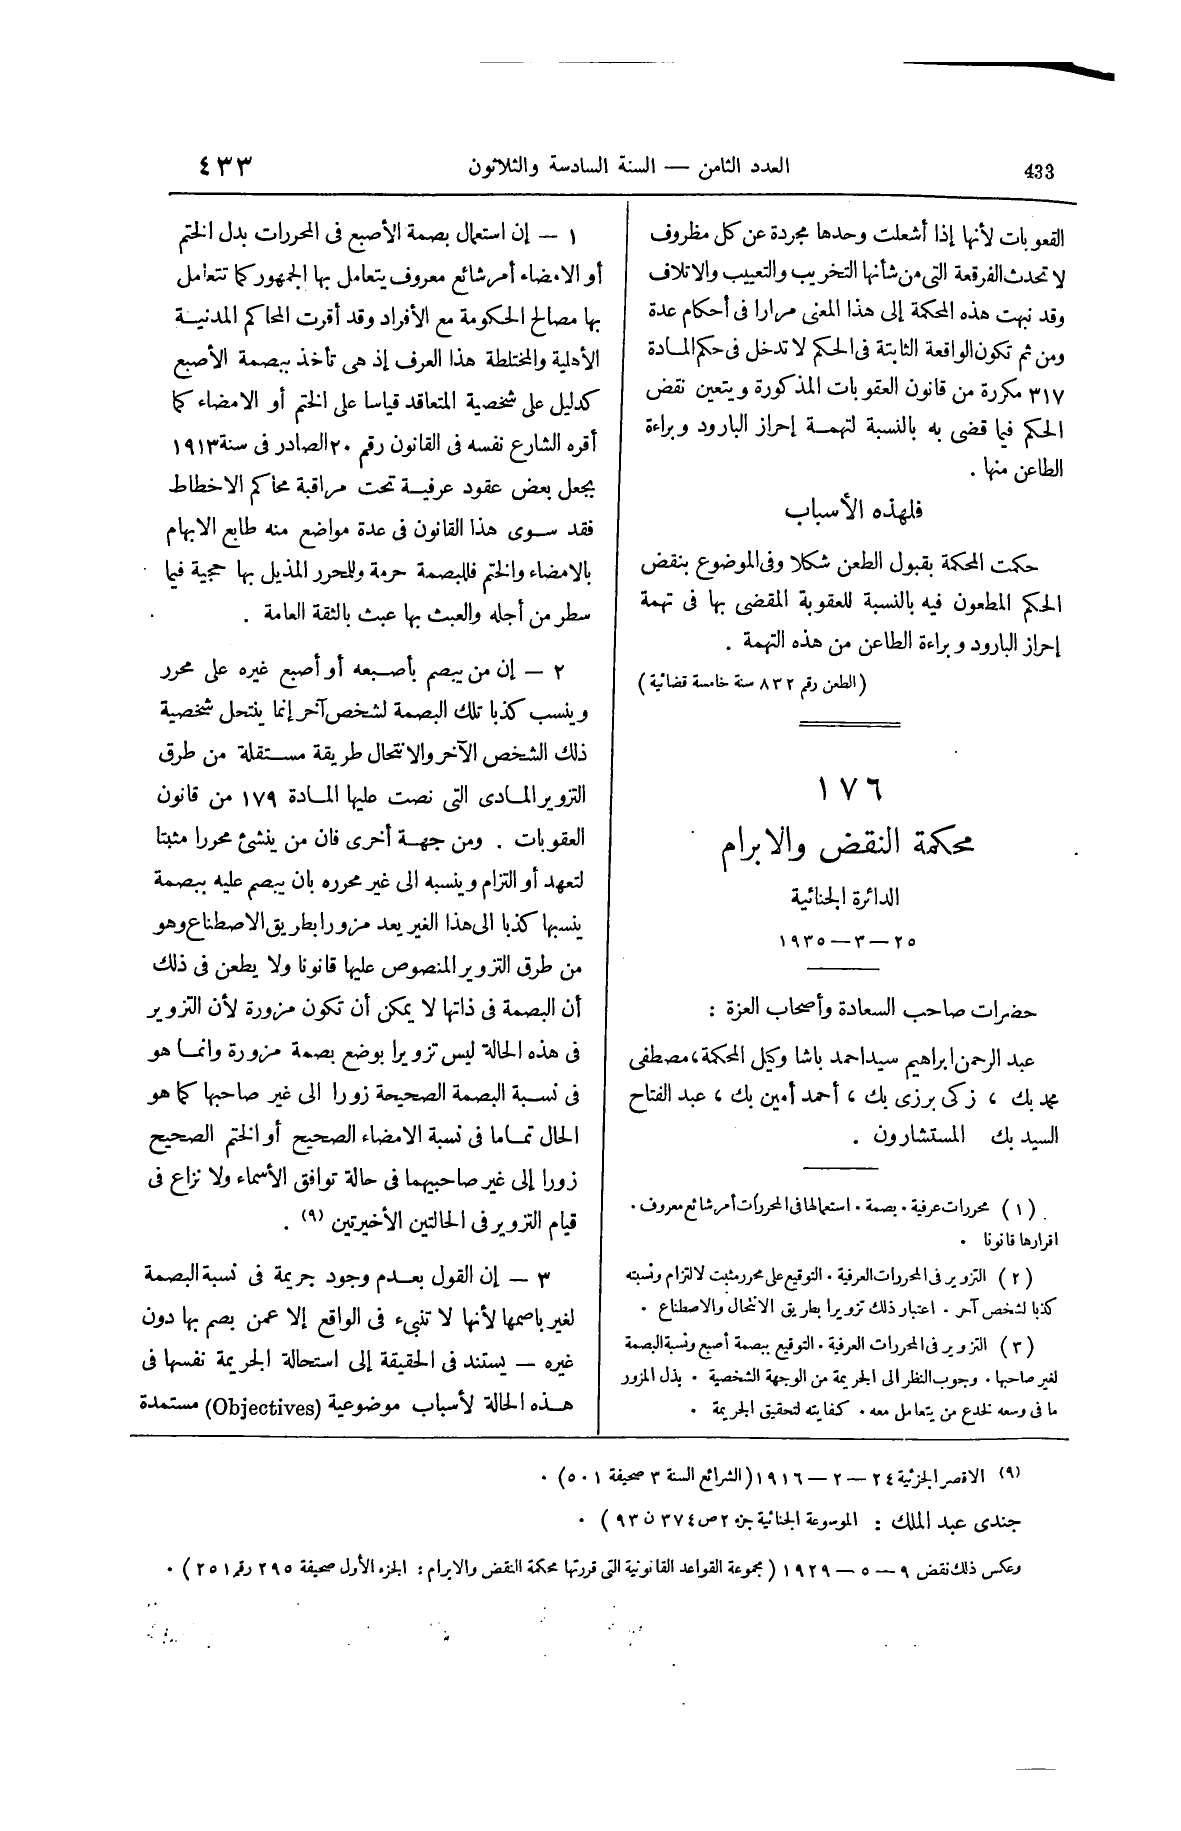 433
العدد الثامن — السنة السادسة والثلاثون
٤٣٣
القعوبات لأنها إذا أشعلت وحدها مجردة عن كل مظروف
لا تحدث الفرقعة التى من شأنها التخريب والتعييب والاتلاف
وقد نبهت هذه المحكمة إلى هذا المعنى مرارا فى أحكام عدة
ومن ثم تكون الواقعة الثابتة فى الحكم لا تدخل فى حكم المادة
٣١٧ مكررة من قانون العقوبات المذكورة ويتعين نقض
الحكم فيما قضى به بالنسبة لتهمة إحراز البارود وبراءة
الطاعن منها .
فلهذه الأسباب
حكمت المحكمة بقبول الطعن شكلا وفى الموضوع بنقض
الحكم المطعون فيه بالنسبة للعقوبة المقضى بها فى تهمة
إحراز البارود وبراءة الطاعن من هذه التهمة .
(الطعن رقم ٨٣٢ سنة خامسة قضائية)
١٧٦
محكمة النقض والابرام
الدائرة الجنائية
٢٥ — ٣ — ١٩٣٥
حضرات صاحب السعادة وأصحاب العزة :
عبد الرحمن ابراهيم سيد احمد باشا وكيل المحكمة، مصطفى
محمد بك ، زكى برزى بك ، أحمد أمين بك ، عبد الفتاح
السيد بك المستشارون .
(١) محررات عرفية . بصمة . استعمالها فى المحررات أمر شائع معروف .
اقرارها قانونا .
(٢) التزوير فى المحررات العرفية . التوقيع على محرر مثبت لالتزام ونسبته
كذبا لشخص آخر . اعتبار ذلك تزويرا بطريق الانتحال والاصطناع .
(٣) التزوير فى المحررات العرفية . التوقيع ببصمة أصبع ونسبة البصمة
لغير صاحبها . وجوب النظر الى الجريمة من الوجهة الشخصية . بذل المزور
ما فى وسعه لخدع من يتعامل معه . كفايته لتحقيق الجريمة .
١ — إن استعمال بصمة الأصبع فى المحررات بدل الختم
أو الامضاء أمر شائع معروف يتعامل بها الجمهور كما تتعامل
بها مصالح الحكومة مع الأفراد وقد أقرت المحاكم المدنية
الأهلية والمختلطة هذا العرف إذ هى تأخذ ببصمة الأصبع
كدليل على شخصية المتعاقد قياسا على الختم أو الامضاء كما
أقره الشارع نفسه فى القانون رقم ٢٠ الصادر فى سنة ١٩١٣
بجعل بعض عقود عرفية تحت مراقبة محاكم الاخطاط
فقد سوى هذا القانون فى عدة مواضع منه طابع الابهام
بالامضاء والختم فللبصمة حرمة وللمحرر المذيل بها حجية فيما
سطر من أجله والعبث بها عبث بالثقة العامة .
٢ — إن من يبصم بأصبعه أو أصبع غيره على محرر
وينسب كذبا تلك البصمة لشخص آخر إنما ينتحل شخصية
ذلك الشخص الآخر والانتحال طريقة مستقلة من طرق
التزوير المادى التى نصت عليها المادة ١٧٩ من قانون
العقوبات . ومن جهة أخرى فان من ينشئ محررا مثبتا
لتعهد أو التزام وينسبه الى غير محرره بان يبصم عليه ببصمة
ينسبها كذبا الى هذا الغير يعد مزورا بطريق الاصطناع وهو
من طرق التزوير المنصوص عليها قانونا ولا يطعن فى ذلك
أن البصمة فى ذاتها لا يمكن أن تكون مزورة لأن التزوير
فى هذه الحالة ليس تزويرا بوضع بصمة مزورة وانما هو
فى نسبة البصمة الصحيحة زورا الى غير صاحبها كما هو
الحال تماما فى نسبة الامضاء الصحيح أو الختم الصحيح
زورا إلى غير صاحبيهما فى حالة توافق الأسماء ولا نزاع فى
قيام التزوير فى الحالتين الأخيرتين (٩) .
٣ — إن القول بعدم وجود جريمة فى نسبة البصمة
لغير باصمها لأنها لا تنبىء فى الواقع إلا عمن بصم بها دون
غيره — يستند فى الحقيقة إلى استحالة الجريمة نفسها فى
هذه الحالة لأسباب موضوعية (Objectives) مستمدة
(٩) الاقصر الجزئية ٢٤ — ٢ — ١٩١٦ (الشرائع السنة ٣ صحيفة ٥٠١) .
جندى عبد الملك : الموسوعة الجنائية جزء ٢ ص ٣٧٤ ن ٩٣) .
وعكس ذلك نقض ٩ — ٥ — ١٩٢٩ (مجموعة القواعد القانونية التى قررتها محكمة النقض والابرام : الجزء الأول صحيفة ٢٩٥ رقم ٢٥١) .